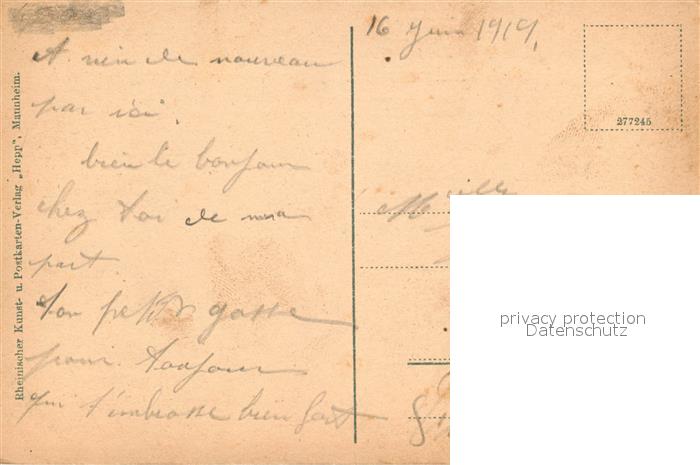 16 Juin 1919,
A rien de nouveau
par ici.
bien le bonjour
chez toi de ma
part.
ton petit gosse
pour toujour
qui t'embrasse bien fort
Melle
277245
Rheinischer Kunst- u. Postkarten-Verlag „Hepp", Mannheim.
privacy protection
Datenschutz